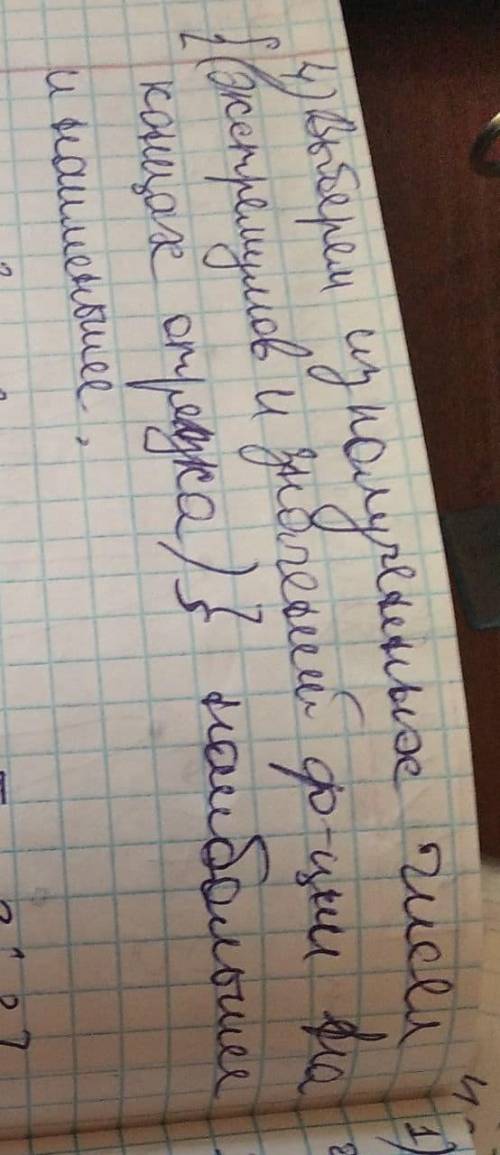 4) Выберем из полученных чисел
{(экстремумов и значений ф-ции на
концах отрезка)} наибольшее
и наименьшее.
1)